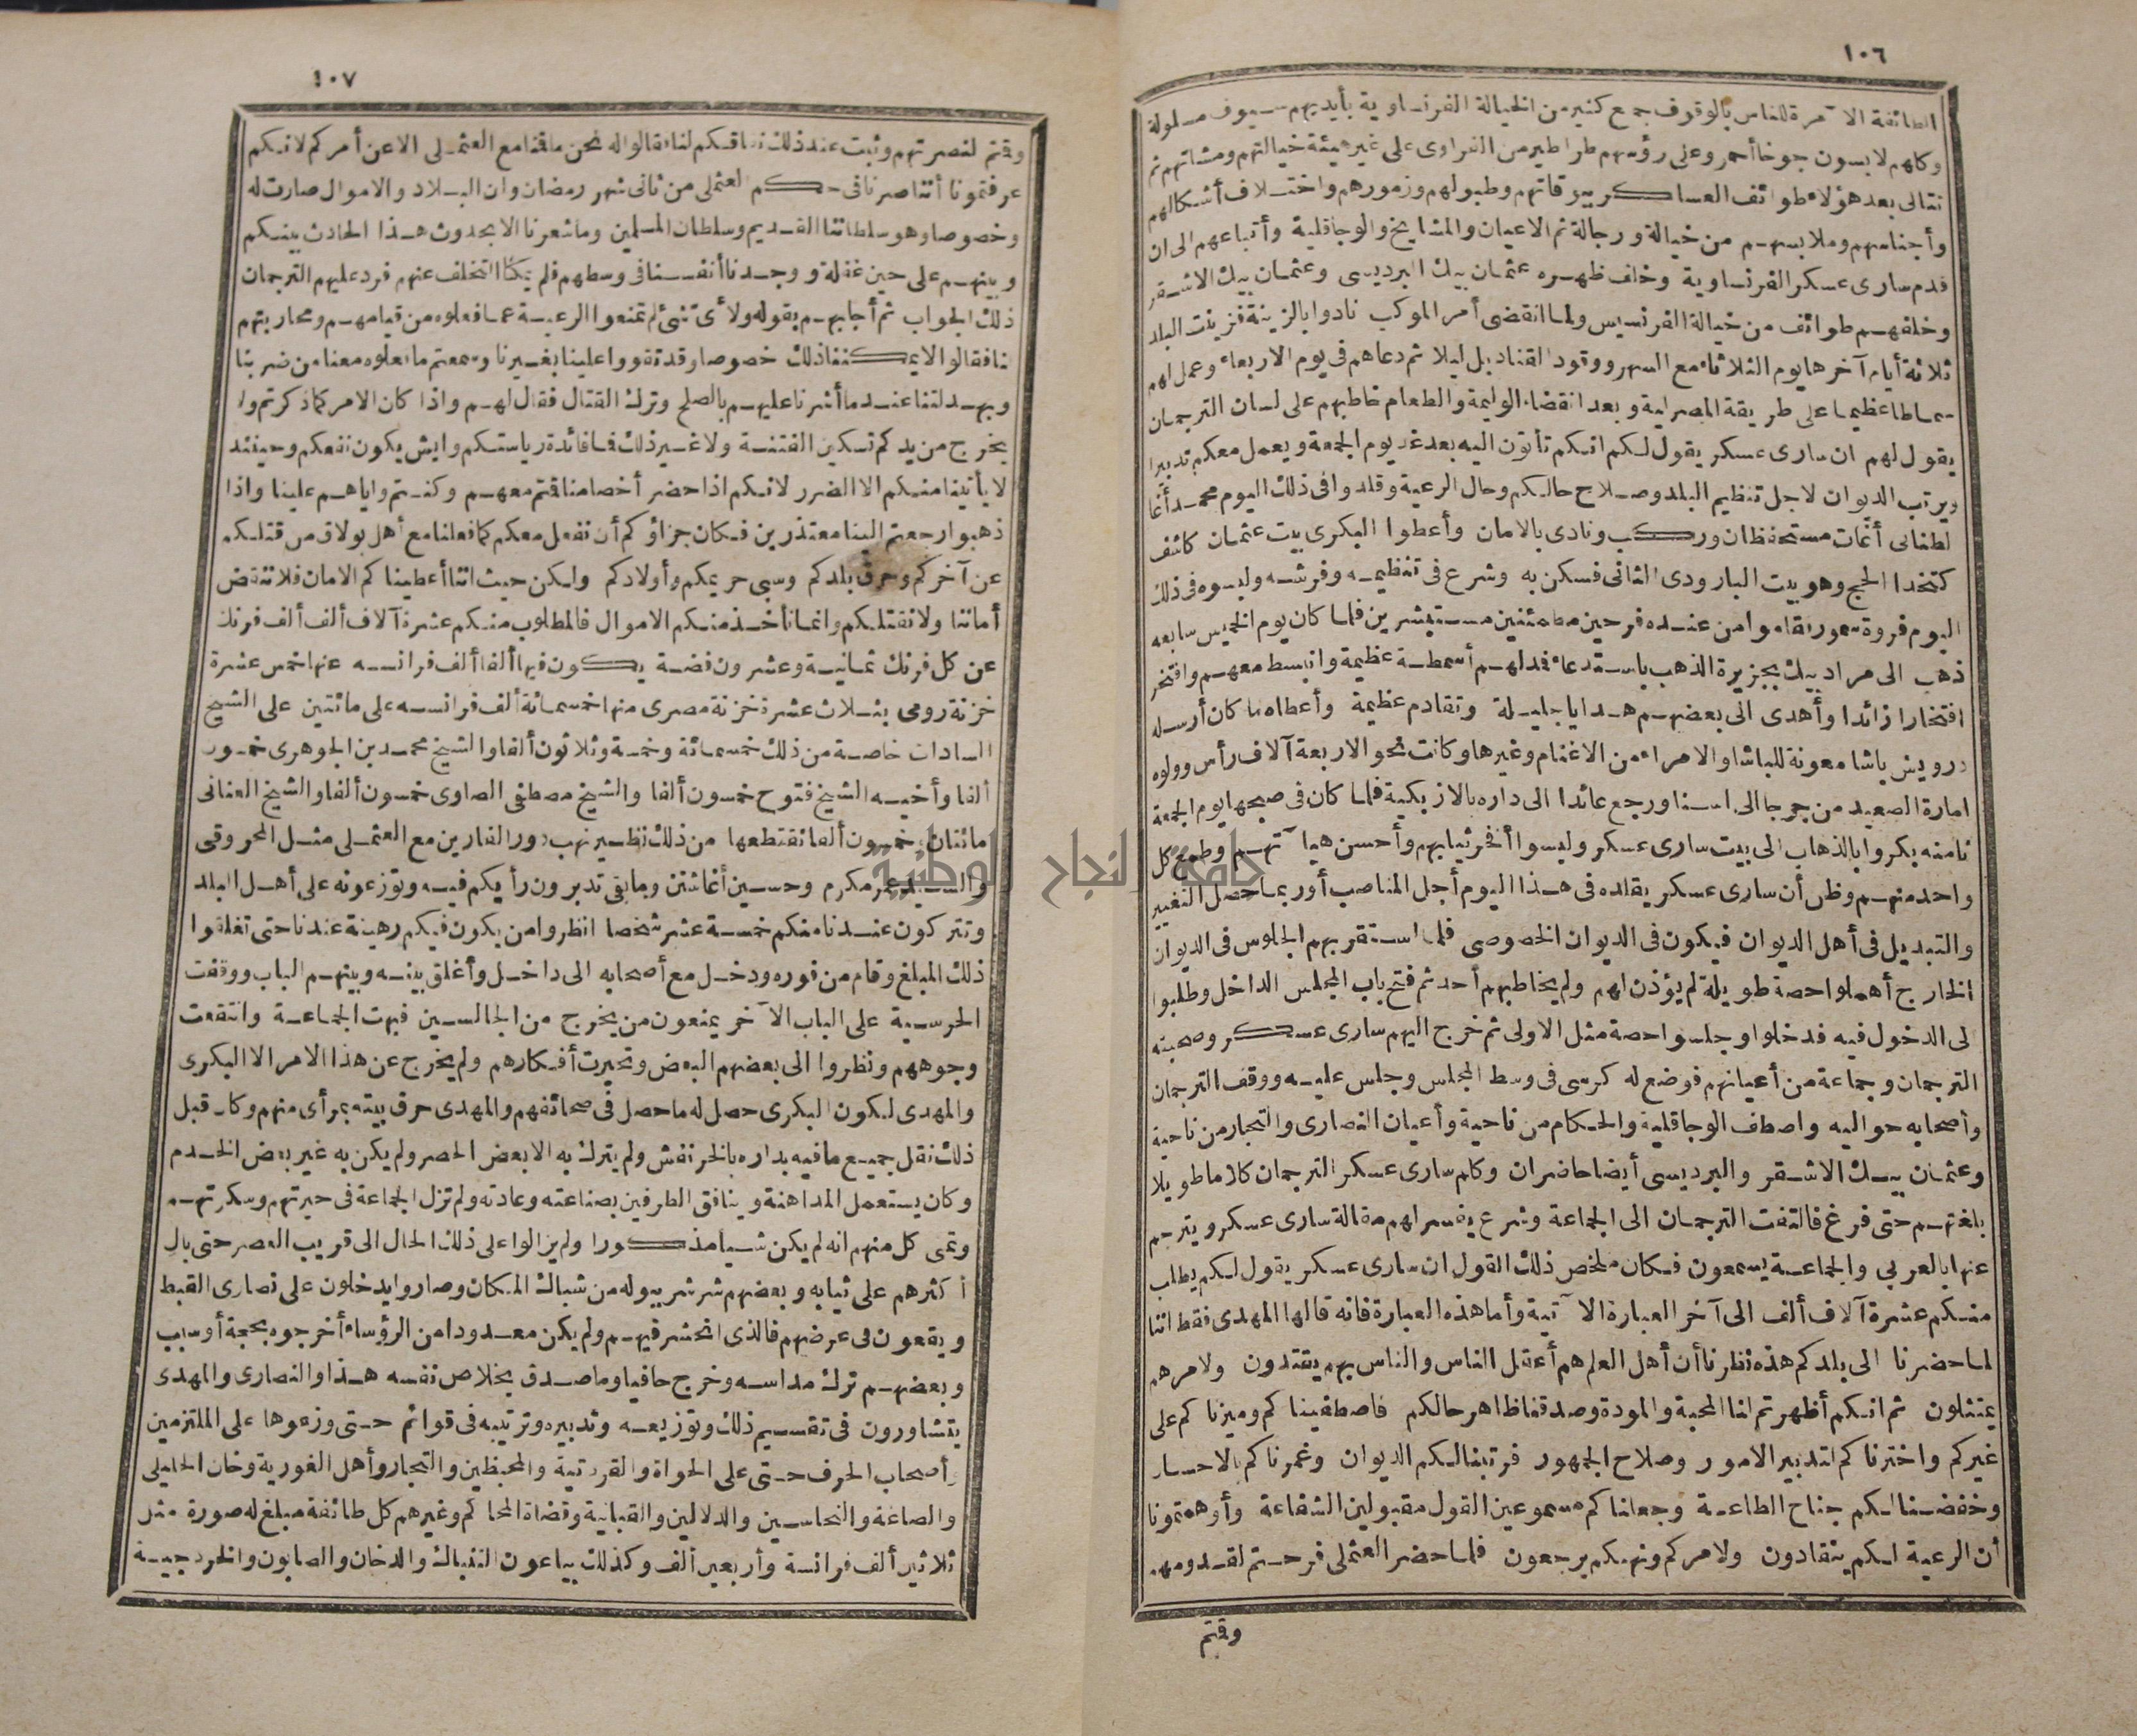 ١٠٦
الطائفة الآمرة للناس بالوقوف جمع كثير من الخيالة الفرنساوية بأيديهم سيوف مسلولة
وكلهم لابسون جوخا أحمر وعلى رؤسهم طراطير من الفراوى على غير هيئة خيالتهم ومشاتهم ثم
تتالى بعد هؤلاء طوائف العساكر ببيرقاتهم وطبولهم وزمورهم واختلاف أشكالهم
وأجناسهم وملابسهم من خيالة ورجالة ثم الاعيان والمشايخ والوجاقلية وأتباعهم الى ان
قدم سارى عسكر الفرنساوية وخلف ظهره عثمان بيك البرديسى وعثمان بيك الاشقر
وخلفهم طوائف من خيالة الفرنسيس ولما انقضى أمر الموكب نادوا بالزينة فزينت البلد
ثلاثة أيام آخرها يوم الثلاثاء مع السهر ووقود القناديل ليلا ثم دعاهم فى يوم الاربعاء وعمل لهم
سماطا عظيما على طريقة المصرلية وبعد انقضاء الوليمة والطعام خاطبهم على لسان الترجمان
يقول لهم ان سارى عسكر يقول لكم انكم تأتون اليه بعد غد يوم الجمعة ويعمل معكم تدبيرا
ويرتب الديوان لاجل تنظيم البلد وصلاح حالكم وحال الرعية وقلدوا فى ذلك اليوم محمد أغا
لطنانى أغات مستحفظان وركب ونادى بالامان وأعطوا البكرى بيت عثمان كاشف
كتخدا الحج وهو بيت البارودى الثانى فسكن به وشرع فى تنظيمه وفرشه ولبسوه فى ذلك
اليوم فروة سمور فقاموا من عنده فرحين مطمئنين مستبشرين فلما كان يوم الخميس سابعه
ذهب الى مراد بيك بجزيرة الذهب باستدعاء فمد لهم أسمطة عظيمة وانبسط معهم وافتخر
افتخارا زائدا وأهدى الى بعضهم هدايا جليلة وتقادم عظيمة وأعطاه ما كان أرسله
درويش باشا معونة للباشا والامراء من الاغنام وغيرها وكانت نحو الاربعة آلاف رأس وولوه
امارة الصعيد من جرجا الى اسنا ورجع عائدا الى داره بالازبكية فلما كان فى صبحها يوم الجمعة
ثامنه بكروا بالذهاب الى بيت سارى عسكر ولبسوا أفخر ثيابهم وأحسن هيآتهم وطمع كل
واحد منهم وظن أن سارى عسكر يقلده فى هذا اليوم أجل المناصب أو ربما حصل التغيير
والتبديل فى أهل الديوان فيكون فى الديوان الخصوصى فلما استقر بهم الجلوس فى الديوان
الخارج أهملوا حصة طويلة لم يؤذن لهم ولم يخاطبهم أحد ثم فتح باب المجلس الداخل وطلبوا
لى الدخول فيه فدخلوا وجلسوا حصة مثل الاولى ثم خرج اليهم سارى عسكر وصحبته
الترجمان وجماعة من أعيانهم فوضع له كرسى فى وسط المجلس وجلس عليه ووقف الترجمان
وأصحابه حواليه واصطف الوجاقلية والحكام من ناحية وأعيان النصارى والتجار من ناحية
وعثمان بيك الاشقر والبرديسى أيضا حاضران وكلم سارى عسكر الترجمان كلاما طويلا
بلغتهم حتى فرغ فالتفت الترجمان الى الجماعة وشرع يفسر لهم مقالة سارى عسكر ويترجم
عنها بالعربي والجماعة يسمعون فكان ملخص ذلك القول ان سارى عسكر يقول لكم يطلب
منكم عشرة آلاف ألف الى آخر العبارة الآتية وأما هذه العبارة فانه قالها المهدى فقط اننا
لما حضرنا الى بلدكم هذه نظرنا أن أهل العلم هم أعقل الناس والناس بهم يقتدون ولامرهم
يمتثلون ثم انكم أظهرتم لنا المحبة والمودة وصدقنا ظاهر حالكم فاصطفيناكم وميزناكم على
غيركم واخترناكم لتدبير الامور وصلاح الجمهور فرتبنا لكم الديوان وغمرناكم بالاحسان
وخفضنا لكم جناح الطاعة وجعلناكم مسموعين القول مقبولين الشفاعة وأوهمتمونا
أن الرعية لكم ينقادون ولامركم ونهيكم يرجعون فلما حضر العثملى فرحتم لقدومهم
وقتم
١٠٧
وقتم لنصرتهم وثبت عند ذلك نفاقكم لنا فقالوا له نحن ماقمنا مع العثملى الا عن أمركم لانكم
عرفتمونا أننا صرنا فى حكم العثملى من ثانى شهر رمضان وان البلاد والاموال صارت له
وخصوصا وهو سلطاننا القديم وسلطان المسلمين وما شعرنا الا بحدوث هذا الحادث بينكم
وبينهم على حين غفلة ووجدنا أنفسنا فى وسطهم فلم يمكنا التخلف عنهم فرد عليهم الترجمان
ذلك الجواب ثم أجابهم بقوله ولأى شئ لم تمنعوا الرعية عما فعلوه من قيامهم ومحاربتهم
لنا فقالوا لا يمكننا ذلك خصوصا وقد تقووا علينا بغيرنا وسمعتم ما فعلوه معنا من ضربنا
وبهدلتنا عندما أشرنا عليهم بالصلح وترك القتال فقال لهم واذا كان الامر كما ذكرتم ولا
يخرج من يدكم تسكين الفتنة ولا غير ذلك فما فائدة رياستكم وايش يكون نفعكم وحينئذ
لا يأتينا منكم الا الضرر لانكم اذا حضر أخصامنا قمتم معهم وكنتم واياهم علينا واذا
ذهبوا رجعتم الينا معتذرين فكان جزاؤكم أن نفعل معكم كما فعلنا مع أهل بولاق من قتلكم
عن آخركم وحرق بلدكم وسبى حريمكم وأولادكم ولكن حيث اننا أعطيناكم الامان فلا ننقض
أماننا ولا نقتلكم وانما نأخذ منكم الاموال فالمطلوب منكم عشرة آلاف ألف ألف فرنك
عن كل فرنك ثمانية وعشرون فضة يكون فيها ألفا ألف فرانسه عنها خمس عشرة
خزنة رومى بثلاث عشرة خزنة مصرى منها خمسمائة ألف فرانسه على مائتين على الشيخ
السادات خاصة من ذلك خمسمائة وخمسة وثلاثون ألفا والشيخ محمد بن الجوهرى خمسون
ألفا وأخيه الشيخ فتوح خمسون ألفا والشيخ مصطفى الصاوى خمسون ألفا والشيخ العنانى
مائتان وخمسون ألفا نقتطعها من ذلك نظير نهب دور الفارين مع العثملى مثل المحروقى
والسيد عمر مكرم وحسين أغا شنن وما بقى تدبرون رأيكم فيه وتوزعونه على أهل البلد
وتتركون عندنا منكم خمسة عشر شخصا انظروا من يكون فيكم رهينة عندنا حتى تغلقوا
ذلك المبلغ وقام من فوره ودخل مع أصحابه الى داخل وأغلق بينه وبينهم الباب ووقفت
الحرسية على الباب الآخر يمنعون من يخرج من الجالسين فبهت الجماعة وانتقعت
وجوههم ونظروا الى بعضهم البعض وتحيرت أفكارهم ولم يخرج عن هذا الامر الا البكرى
والمهدى لكون البكرى حصل له ما حصل فى صحائفهم والمهدى حرق بيته بمرأى منهم وكان قبل
ذلك نقل جميع ما فيه بداره بالخرنفش ولم يترك به الا بعض الحصر ولم يكن به غير بعض الخدم
وكان يستعمل المداهنة وينافق الطرفين بصناعته وعادته ولم تزل الجماعة فى حيرتهم وسكرتهم
وتمنى كل منهم انه لم يكن شيأ مذكورا ولم يزالوا على ذلك الحال الى قريب العصر حتى بال
أكثرهم على ثيابه وبعضهم شرشر ببوله من شباك المكان وصاروا يدخلون على نصارى القبط
ويقعون فى عرضهم فالذى انحشر فيهم ولم يكن معدودا من الرؤساء أخرجوه بحجة أو سبب
وبعضهم ترك مداسه وخرج حافيا وما صدق بخلاص نفسه هذا والنصارى والمهدى
يتشاورون فى تقسيم ذلك وتوزيعه وتدبيره وترتيبه فى قوائم حتى وزعوها على الملتزمين
وأصحاب الحرف حتى على الحواة والقردتية والمحبظين والتجار وأهل الغورية وخان الخليلى
والصاغة والنحاسين والدلالين والقبانية وقضاة المحاكم وغيرهم كل طائفة مبلغ له صورة مثل
ثلاثين ألف فرانسة وأربعين ألف وكذلك بياعون التنباك والدخان والصابون والخردجية
جامعة النجاح الوطنية